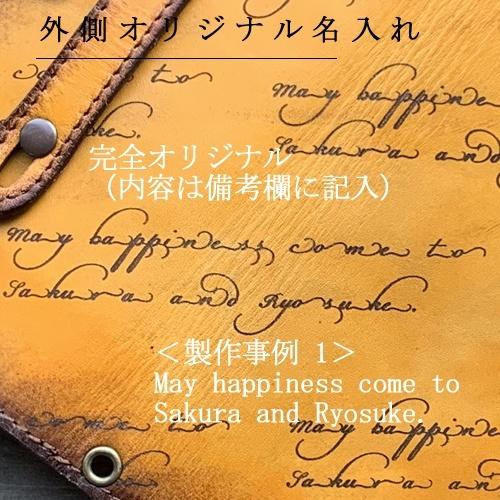 外側オリジナル名入れ
come to
May happine
Sakura and
完全オリジナル
（内容は備考欄に記入）
May happiness come to
Sakura and Ryosuke.
＜製作事例 1＞
May happiness come to
Sakura and Ryosuke.
come to
May happines
Sakura and